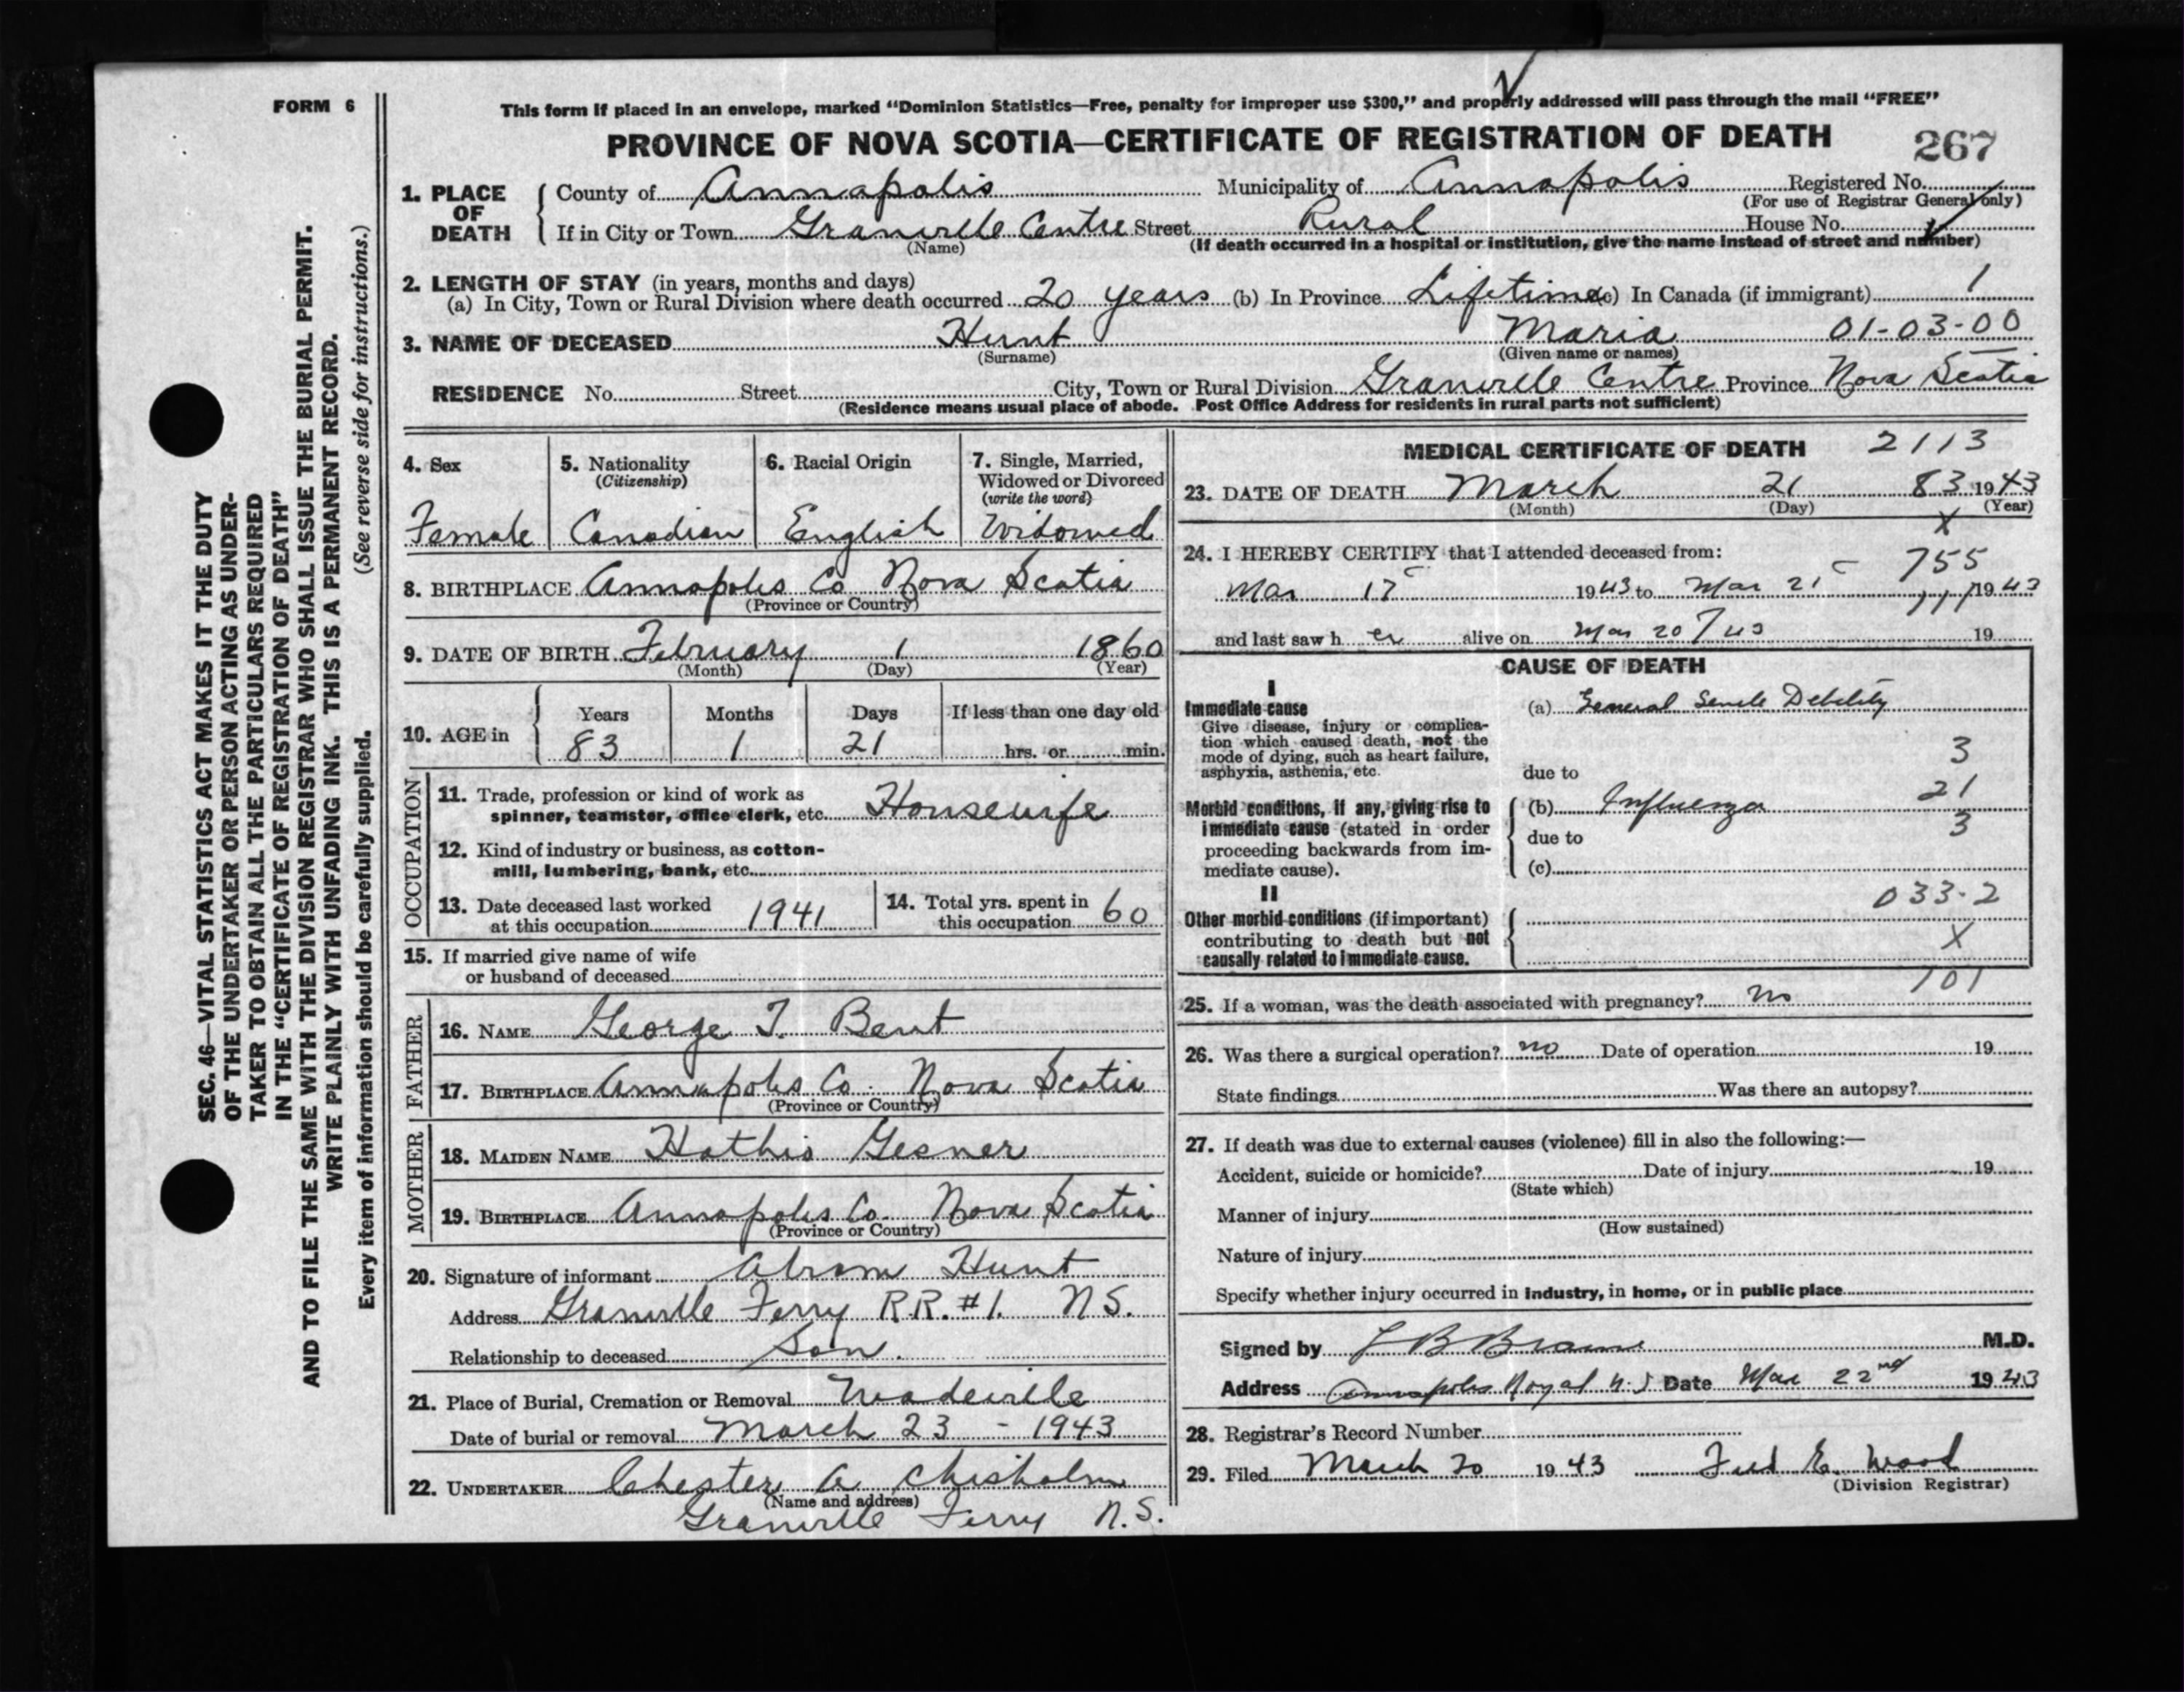 FORM 6
This form if placed in an envelope, marked “Dominion Statistics—Free, penalty for improper use $300,” and properly addressed will pass through the mail “FREE”
PROVINCE OF NOVA SCOTIA—CERTIFICATE OF REGISTRATION OF DEATH 267
1. PLACE OF DEATH
County of Annapolis Municipality of Annapolis Registered No.
(For use of Registrar General only)
If in City or Town Granville Centre Street Rural House No.
(Name) (If death occurred in a hospital or institution, give the name instead of street and number)
2. LENGTH OF STAY (in years, months and days)
(a) In City, Town or Rural Division where death occurred 20 years (b) In Province Lifetime (c) In Canada (if immigrant) 1
3. NAME OF DECEASED Hunt Maria 01-03-00
(Surname) (Given name or names)
RESIDENCE No. Street City, Town or Rural Division Granville Centre Province Nova Scotia
(Residence means usual place of abode. Post Office Address for residents in rural parts not sufficient)
4. Sex
Female
5. Nationality
(Citizenship)
Canadian
6. Racial Origin
English
7. Single, Married,
Widowed or Divorced
(write the word)
Widowed
8. BIRTHPLACE Annapolis Co Nova Scotia
(Province or Country)
9. DATE OF BIRTH February 1 1860
(Month) (Day) (Year)
10. AGE in
Years Months Days If less than one day old
83 1 21 hrs. or min.
OCCUPATION
11. Trade, profession or kind of work as
spinner, teamster, office clerk, etc. Housewife
12. Kind of industry or business, as cotton-
mill, lumbering, bank, etc.
13. Date deceased last worked
at this occupation 1941
14. Total yrs. spent in
this occupation 60
15. If married give name of wife
or husband of deceased
FATHER
16. NAME George T. Bent
17. BIRTHPLACE Annapolis Co. Nova Scotia
(Province or Country)
MOTHER
18. MAIDEN NAME Gesner
19. BIRTHPLACE Annapolis Co. Nova Scotia
(Province or Country)
20. Signature of informant Abram Hunt
Address Granville Ferry R.R. #1. N.S.
Relationship to deceased Son.
21. Place of Burial, Cremation or Removal
Date of burial or removal March 23 - 1943
22. UNDERTAKER Chester A Chisholm
(Name and address)
Granville Ferry N.S.
MEDICAL CERTIFICATE OF DEATH 2113
23. DATE OF DEATH March 21 83 1943
(Month) (Day) (Year)
X
24. I HEREBY CERTIFY that I attended deceased from:
755
Mar 17 1943 to Mar 21 1943
and last saw h er alive on Mar 20/43 19
CAUSE OF DEATH
I
Immediate cause
Give disease, injury or complica-
tion which caused death, not the
mode of dying, such as heart failure,
asphyxia, asthenia, etc.
(a) General Senile Debility
3
due to
Morbid conditions, if any, giving rise to
immediate cause (stated in order
proceeding backwards from im-
mediate cause).
(b) Influenza 21
3
due to
(c)
033-2
II
Other morbid conditions (if important)
contributing to death but not
causally related to immediate cause.
X
101
25. If a woman, was the death associated with pregnancy? no
26. Was there a surgical operation? no Date of operation 19
State findings Was there an autopsy?
27. If death was due to external causes (violence) fill in also the following:—
Accident, suicide or homicide? Date of injury 19
(State which)
Manner of injury
(How sustained)
Nature of injury
Specify whether injury occurred in industry, in home, or in public place
Signed by M.D.
Address Annapolis Royal N.S Date Mar 22nd 1943
28. Registrar’s Record Number
29. Filed March 30 1943 Fred E. Wood
(Division Registrar)
SEC. 46—VITAL STATISTICS ACT MAKES IT THE DUTY
OF THE UNDERTAKER OR PERSON ACTING AS UNDER-
TAKER TO OBTAIN ALL THE PARTICULARS REQUIRED
IN THE “CERTIFICATE OF REGISTRATION OF DEATH”
AND TO FILE THE SAME WITH THE DIVISION REGISTRAR WHO SHALL ISSUE THE BURIAL PERMIT.
WRITE PLAINLY WITH UNFADING INK. THIS IS A PERMANENT RECORD.
Every item of information should be carefully supplied. (See reverse side for instructions.)